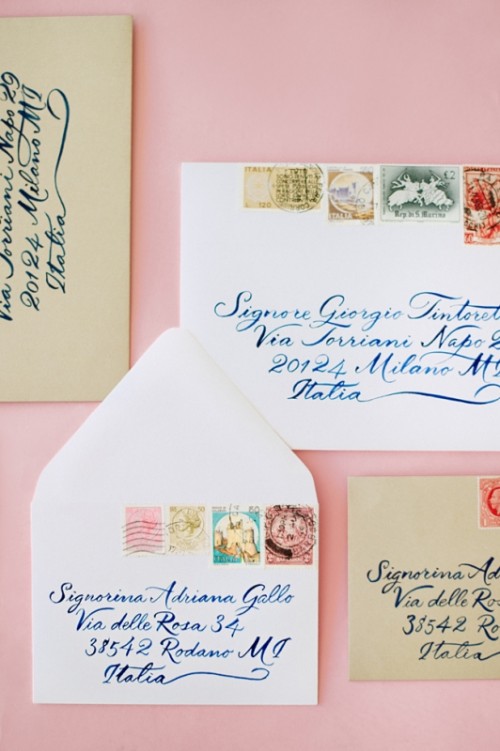 Via Torriani Napo 29
20124 Milano MI
Italia
ITALIA
120
ITALIA
£2
Rep. di S. Marino
Signore Giorgio Tintoret
Via Torriani Napo 2
20124 Milano MI
Italia
50
Signorina Adriana Gallo
Via delle Rosa 34
38542 Rodano MI
Italia
Signorina Ad
Via delle Ro
3854
Italia